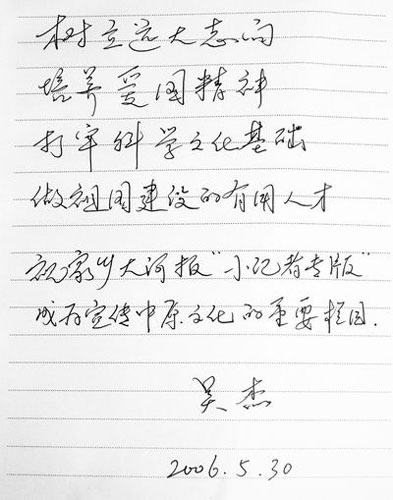 树立远大志向
培养爱国精神
打牢科学文化基础
做祖国建设的有用人才
祝家乡大河报“小记者专版”
成为宣传中原文化的重要栏目.
吴杰
2006.5.30